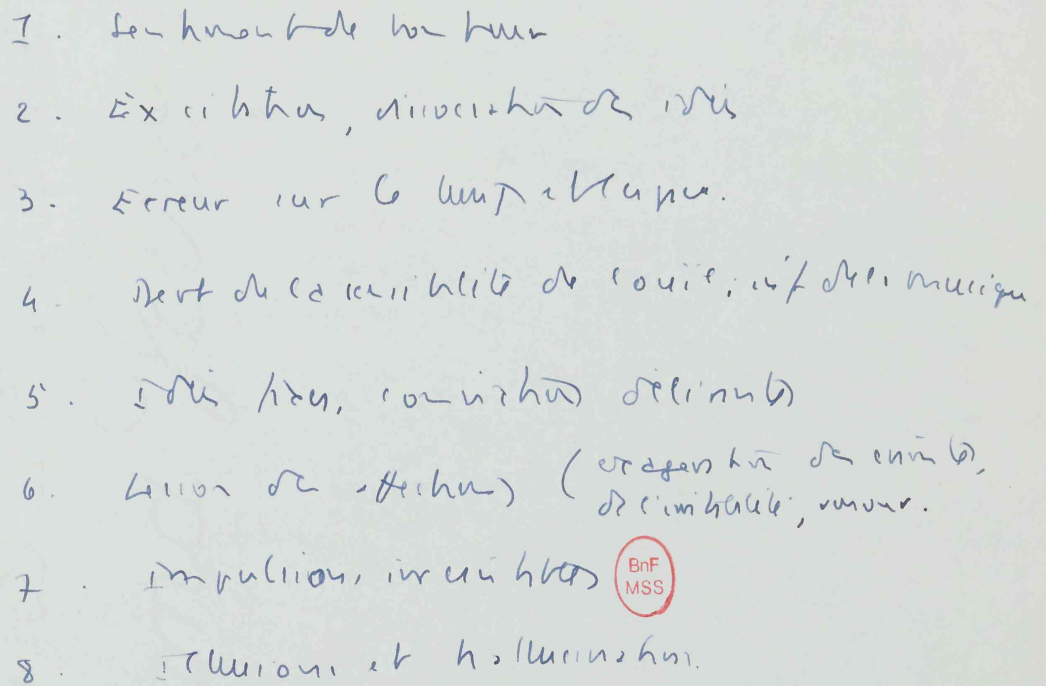 1. Sentiment de bonheur
2. Excitation, dissociation des idées
3. Erreur sur le temps et l'espace.
4. Devt de la sensibilité de l'ouïe, inf. de la musique
5. Idées fixes, convictions délirantes
6. Lésion des affections (exagération des craintes,
de l'irritabilité, amour.
7. Impulsions irrésistibles
BnF
MSS
8. Illusions et hallucinations.